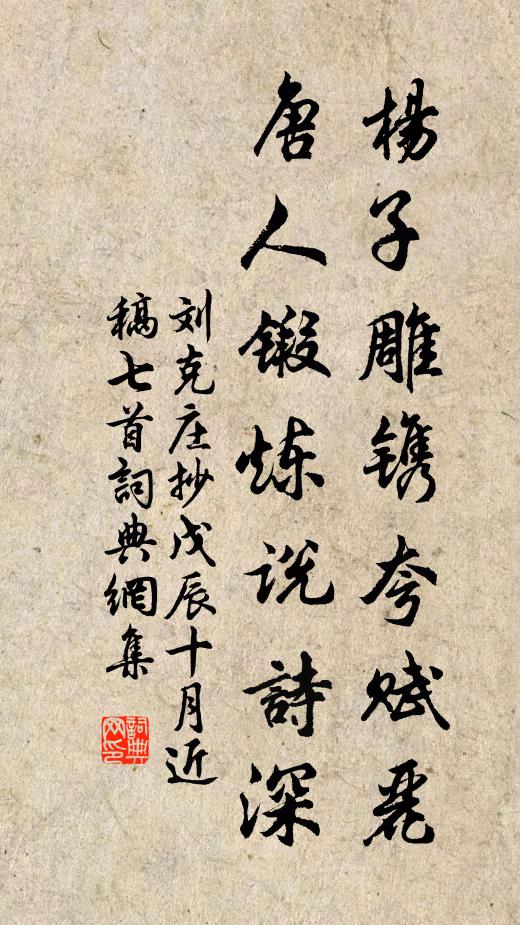 楊子雕镌夸赋麗
唐人锻炼说詩深
刘克庄抄戊辰十月近
稿七首詞典網集
詞典
网印